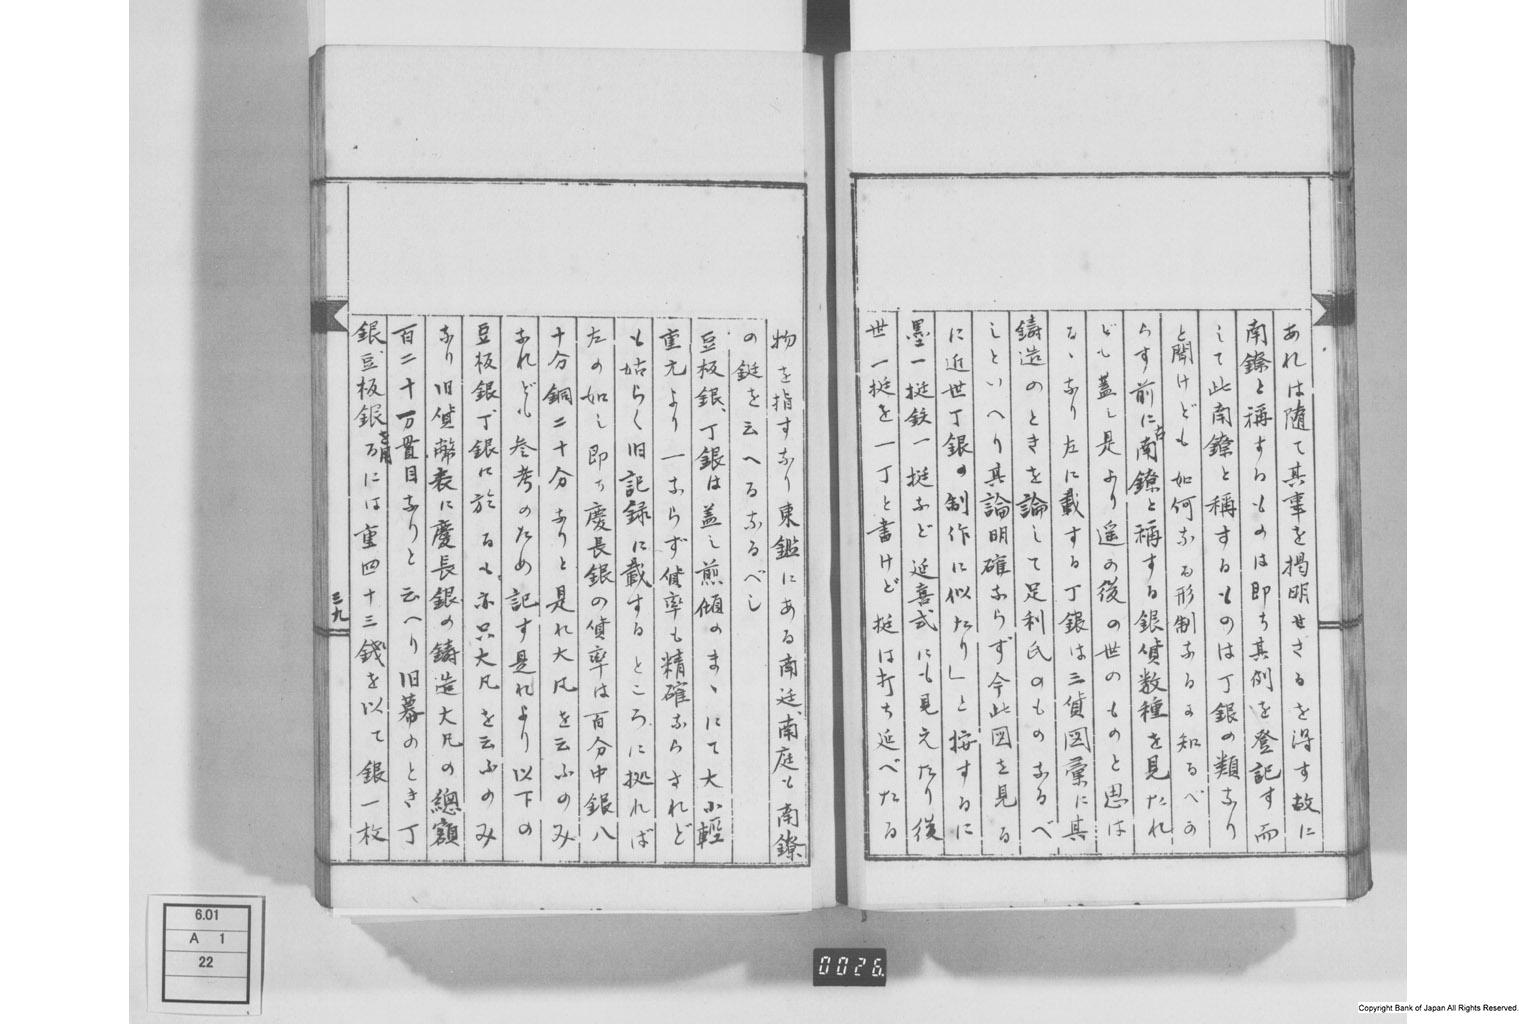 あれは随て其事を掲明せさるを得す故に
南鐐と稱するものは即ち其例を登記す而
して此南鐐と稱するものは丁銀の類なり
と聞けども如何なる形制なるか知るべか
らす前に古南鐐と稱する銀貨数種を見たれ
ども蓋し是より遥か後の世のものと思は
るゝなり左に載する丁銀は三貨図彙に其
鋳造のときを論して足利氏のものなるべ
しといへり其論明確ならず今此図を見る
に近世丁銀の制作に似たり」と按するに
墨一挺鉄一挺など延喜式にも見えたり後
世一挺を一丁と書けど挺は打ち延べたる
物を指すなり東鑑にある南廷、南庭も南鐐
の鋌を云へるなるべし
豆板銀、丁銀は蓋し煎傾のまゝにて大小輕
重元より一ならず貨率も精確ならされど
も姑らく旧記録に載するところに拠れば
左の如し即ち慶長銀の貨率は百分中銀八
十分銅二十分なりと是れ大凡を云ふのみ
なれども参考のため記す是れより以下の
豆板銀、丁銀に於るも亦只大凡を云ふのみ
なり旧貨幣表に慶長銀の鋳造大凡の總額
百二十万貫目なりと云へり旧幕のとき丁
銀、豆板銀を用るには重四十三錢を以て銀一枚
三九
6.01
A 1
22
0026
Copyright Bank of Japan All Rights Reserved.